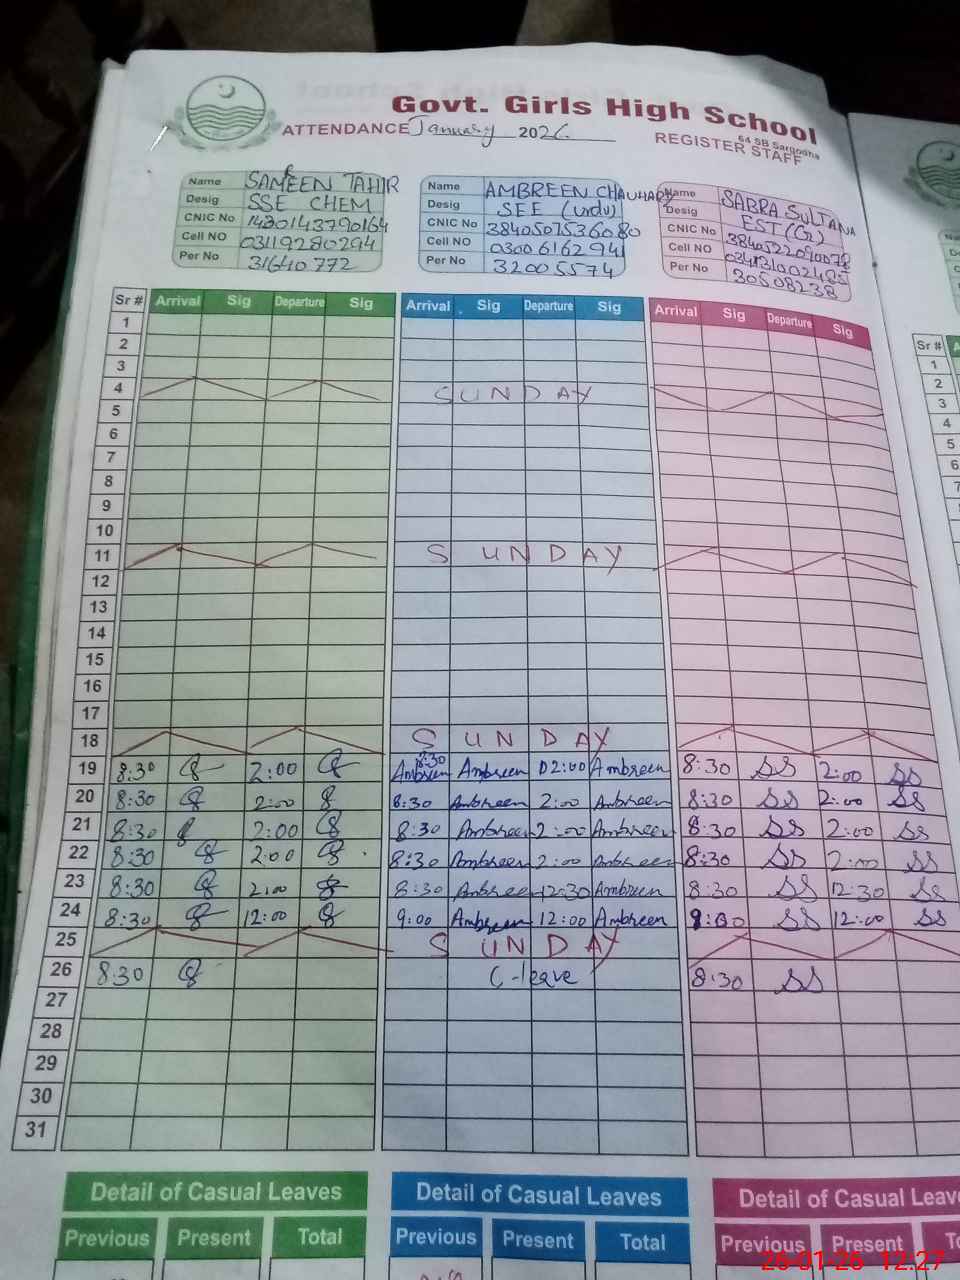 Govt. Girls High School
64 SB Sargodha
ATTENDANCE January 2026 REGISTER STAFF
Name SAMEEN TAHIR
Desig SSE CHEM
CNIC No
Cell NO 03119280294
Per No 31640772
Name AMBREEN CHAUHARY
Desig SEE (Urdu)
CNIC No 3840507536080
Cell NO 03006162941
Per No 32005574
Name SABRA SULTANA
Desig EST (G)
CNIC No
Cell NO
Per No 30508238
Sr # Arrival Sig Departure Sig Arrival Sig Departure Sig Arrival Sig Departure Sig
1
2
3
4 SUNDAY
5
6
7
8
9
10
11 SUNDAY
12
13
14
15
16
17
18 SUNDAY
19 8:30 2:00 8:30 Ambreen Ambreen 02:00 Ambreen 8:30 SS 2:00 SS
20 8:30 2:00 8:30 Ambreen 2:00 Ambreen 8:30 SS 2:00 SS
21 8:30 2:00 8:30 Ambreen 2:00 Ambreen 8:30 SS 2:00 SS
22 8:30 2:00 8:30 Ambreen 2:00 Ambreen 8:30 SS 2:00 SS
23 8:30 2:00 8:30 Ambreen 12:30 Ambreen 8:30 SS 12:30 SS
24 8:30 12:00 9:00 Ambreen 12:00 Ambreen 9:00 SS 12:00 SS
25 SUNDAY
26 8:30 C-leave 8:30 SS
27
28
29
30
31
Detail of Casual Leaves Detail of Casual Leaves Detail of Casual Leave
Previous Present Total Previous Present Total Previous Present To
Sr #
1
2
3
4
5
6
7
26-01-26 12:27